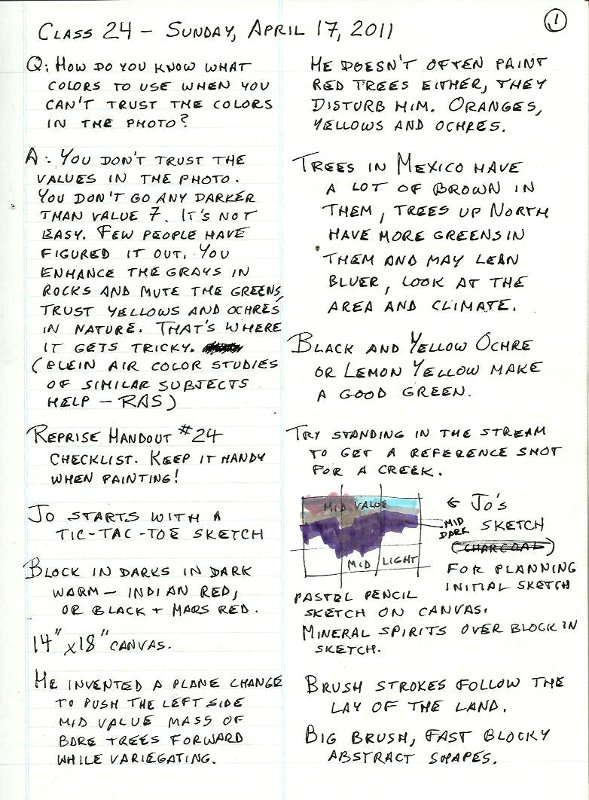 1
CLASS 24 – SUNDAY, APRIL 17, 2011
Q: HOW DO YOU KNOW WHAT
COLORS TO USE WHEN YOU
CAN'T TRUST THE COLORS
IN THE PHOTO?
A: YOU DON'T TRUST THE
VALUES IN THE PHOTO.
YOU DON'T GO ANY DARKER
THAN VALUE 7. IT'S NOT
EASY. FEW PEOPLE HAVE
FIGURED IT OUT. YOU
ENHANCE THE GRAYS IN
ROCKS AND MUTE THE GREENS,
TRUST YELLOWS AND OCHRES
IN NATURE. THAT'S WHERE
IT GETS TRICKY.
(PLEIN AIR COLOR STUDIES
OF SIMILAR SUBJECTS
HELP – RAS)
REPRISE HANDOUT #24
CHECKLIST. KEEP IT HANDY
WHEN PAINTING!
JO STARTS WITH A
TIC-TAC-TOE SKETCH
BLOCK IN DARKS IN DARK
WARM – INDIAN RED,
OR BLACK + MARS RED.
14" x 18" CANVAS.
HE INVENTED A PLANE CHANGE
TO PUSH THE LEFT SIDE
MID VALUE MASS OF
BARE TREES FORWARD
WHILE VARIEGATING.
HE DOESN'T OFTEN PAINT
RED TREES EITHER, THEY
DISTURB HIM. ORANGES,
YELLOWS AND OCHRES.
TREES IN MEXICO HAVE
A LOT OF BROWN IN
THEM, TREES UP NORTH
HAVE MORE GREENS IN
THEM AND MAY LEAN
BLUER, LOOK AT THE
AREA AND CLIMATE.
BLACK AND YELLOW OCHRE
OR LEMON YELLOW MAKE
A GOOD GREEN.
TRY STANDING IN THE STREAM
TO GET A REFERENCE SHOT
FOR A CREEK.
MID VALUE
MID DARK
MID LIGHT
← JO'S
SKETCH
(CHARCOAL)
FOR PLANNING
INITIAL SKETCH
PASTEL PENCIL
SKETCH ON CANVAS.
MINERAL SPIRITS OVER BLOCK IN
SKETCH.
BRUSH STROKES FOLLOW THE
LAY OF THE LAND.
BIG BRUSH, FAST BLOCKY
ABSTRACT SHAPES.